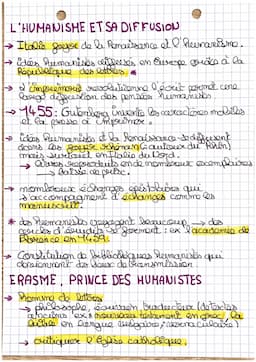 L'HUMANISME ET SA DIFFUSION
→ Italie foyer de la Renaissance et l'humanisme.
→ idées humanistes diffusées en Europe grâce à la
République des lettres.
→ L'imprimerie révolutionne l'écrit permet une
large diffusion des pensées humanistes
→ 1455: Gutenberg invente les caractères mobiles
et la presse à imprimer.
→ idées humanistes et la Renaissance se diffusent
dans les (autour du Rhin)
mais surtout en Italie du Nord.
→ livres reproduits en de nombreux exemplaires
→ baisse de prix.
→ nombreux échanges épistolaires qui
s'accompagnent d'échanges comme les
manuscrits.
* des humanistes voyagent beaucoup → des
cercles d'érudits se forment : ex l'académie de
Florence en 1459.
→ Constitution de bibliothèques humanistes qui
deviennent des lieux de transmission
ERASME, PRINCE DES HUMANISTES
→ Homme de lettres
→ philosophe, écrivain, traducteur (de textes
anciens ex: nouveau testament en grec, la
en langue vulgaire / vernaculaire)
→ critiquer l'Église catholique.